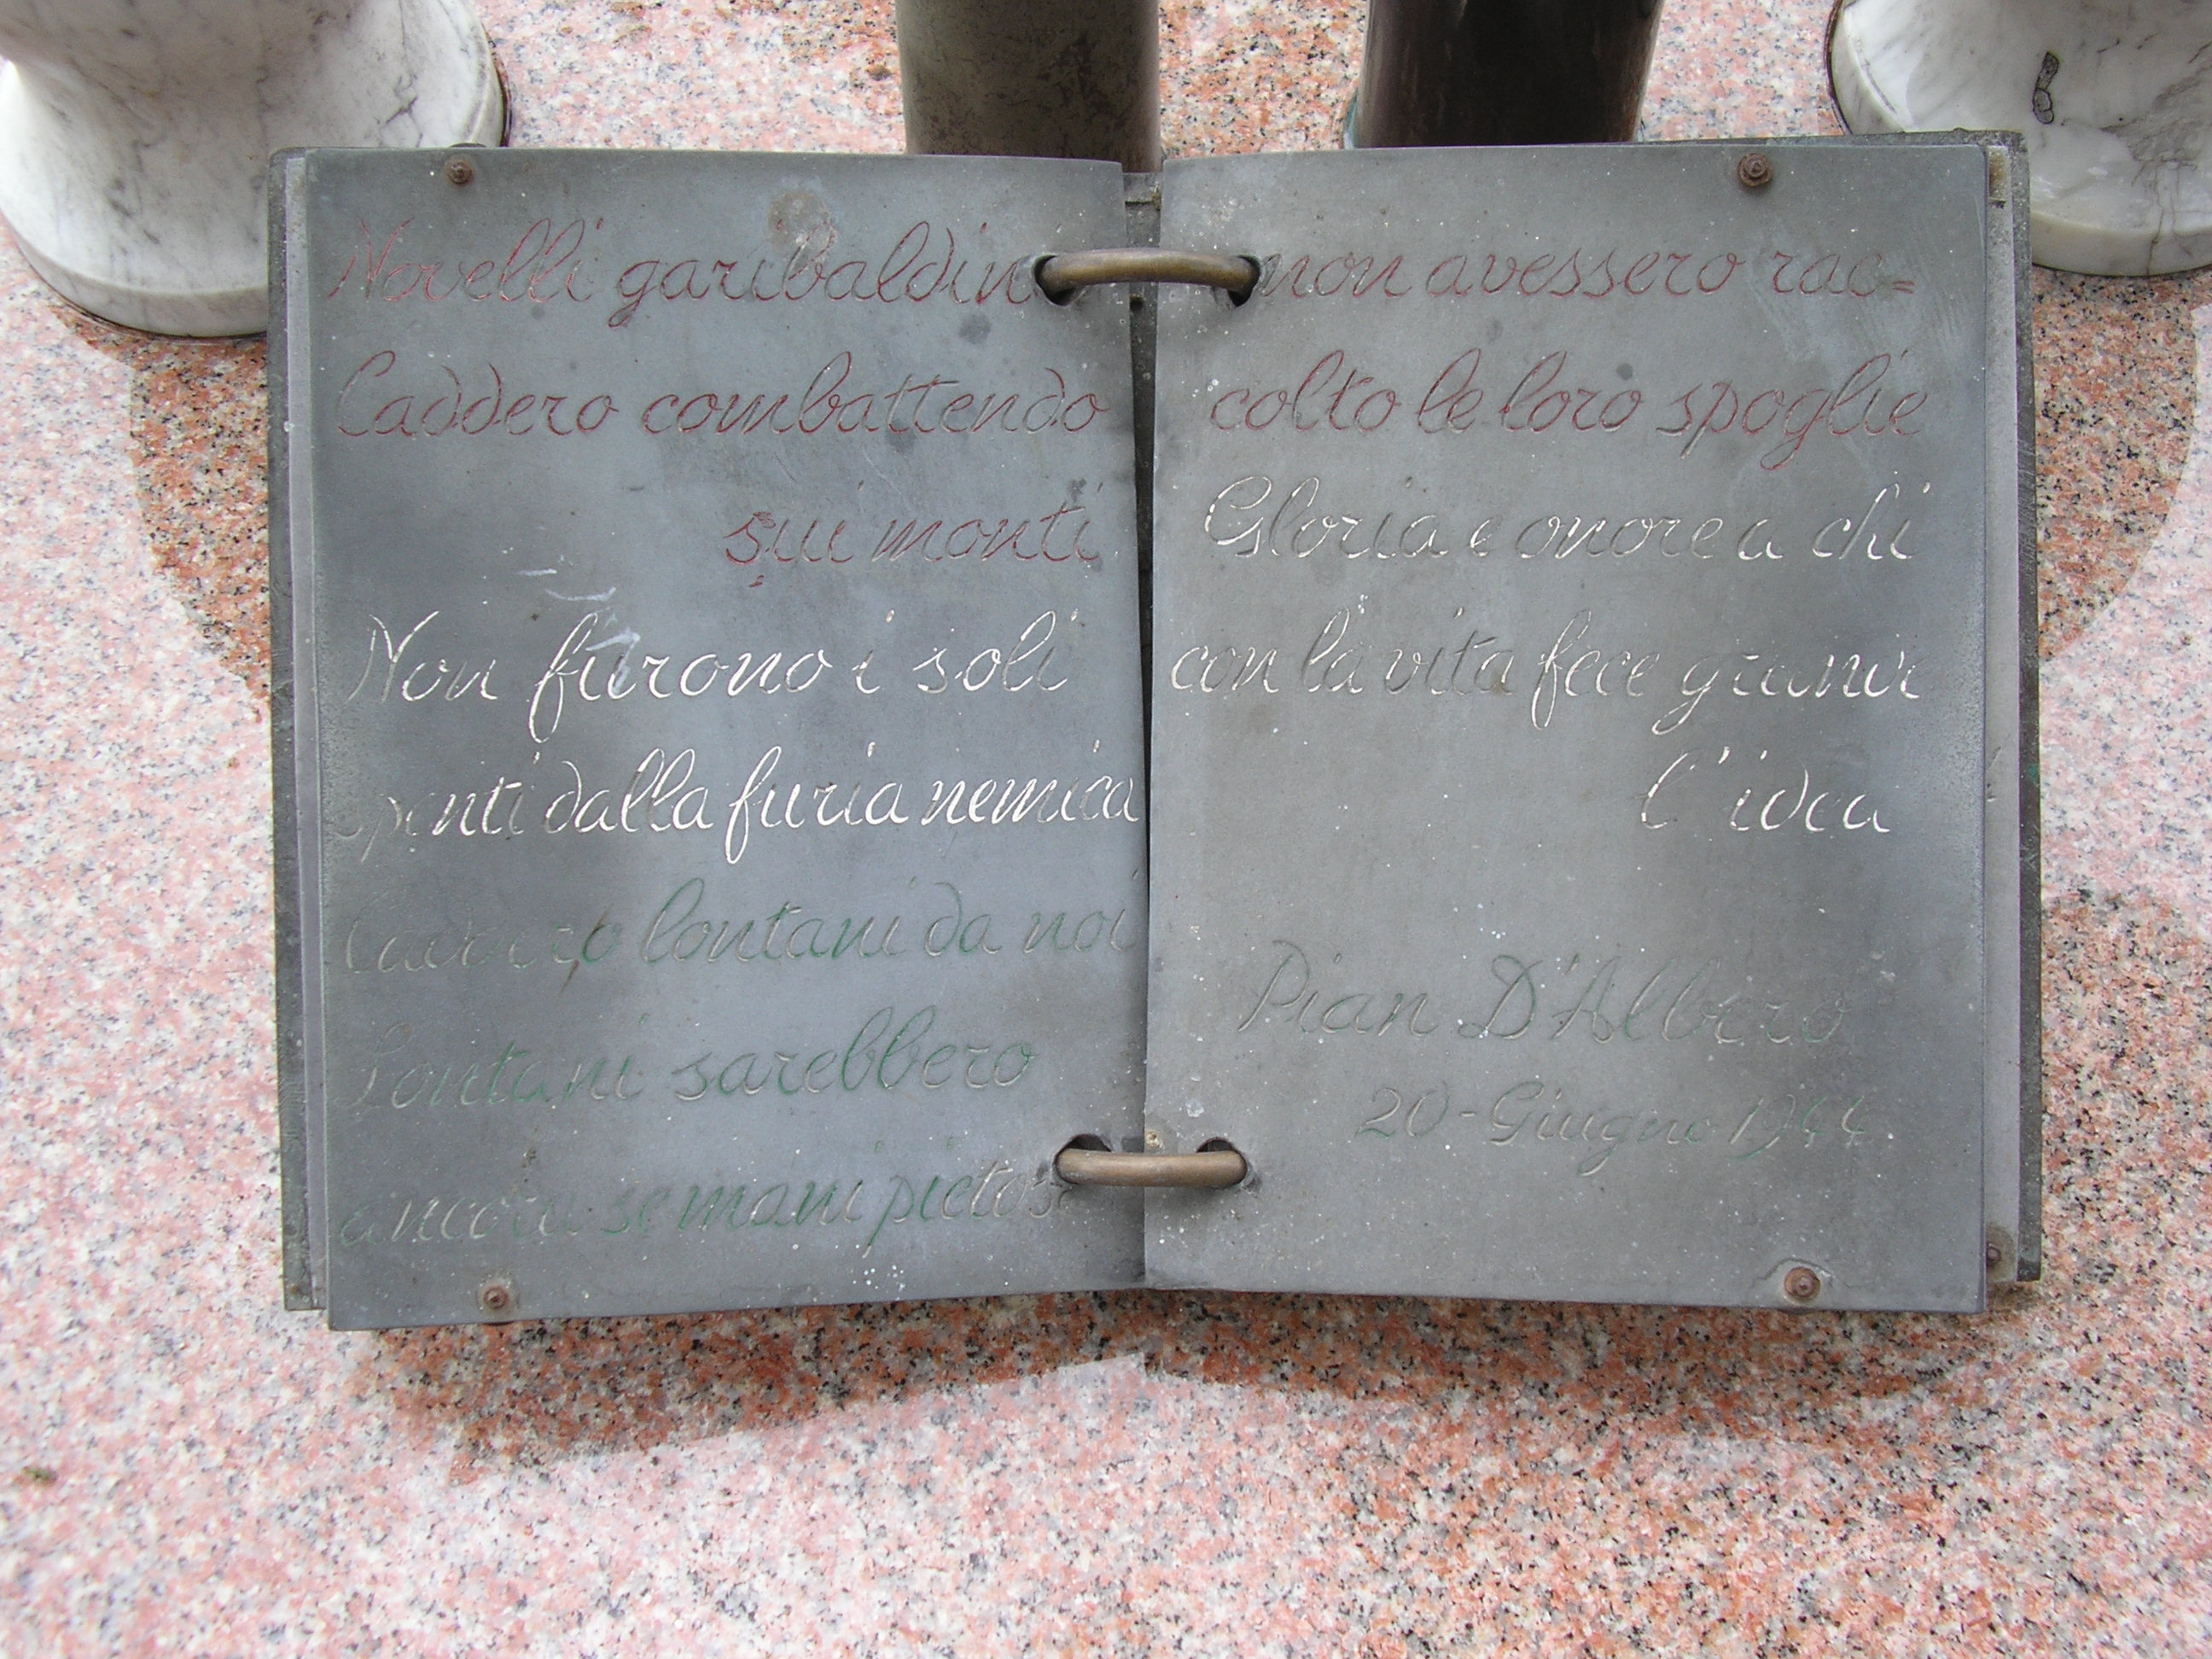 Novelli garibaldini
Caddero combattendo
sui monti
Non furono i soli
spenti dalla furia nemica
Caddero lontani da noi
Lontani sarebbero
ancora se mani pietose
non avessero rac=
colto le loro spoglie
Gloria e onore a chi
con la vita fece grande
l'idea
Pian D'Albero
20-Giugno 1944